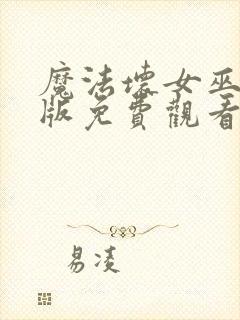 魔法壞女巫
版免費觀看
易凌